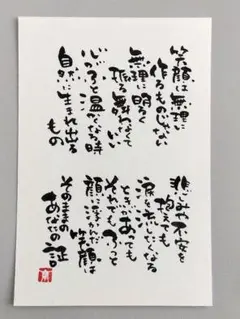 笑顔は無理に
作るものじゃない
無理に明るく
振る舞わなくていい
心がふっと温かくなる時
自然に生まれ出る
もの
悲しみや不安を
抱えても
涙を流したくなる
ときがあっても
それでもふっと
顔に浮かんだ笑顔は
そのままの
あなたの証